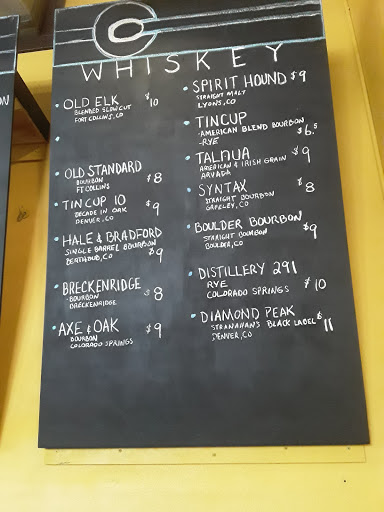 WHISKEY
OLD ELK $10
BLENDED SLOW CUT
FORT COLLINS, CO
OLD STANDARD
BOURBON $8
FT COLLINS
TINCUP 10
DECADE IN OAK $9
DENVER, CO
HALE & BRADFORD
SINGLE BARREL BOURBON
BERTHOUD, CO $9
BRECKENRIDGE
-BOURBON $8
BRECKENRIDGE
AXE & OAK $9
BOURBON
COLORADO SPRINGS
SPIRIT HOUND $9
STRAIGHT MALT
LYONS, CO
TINCUP
-AMERICAN BLEND BOURBON
-RYE $6.5
TALNUA $9
AMERICAN & IRISH GRAIN
ARVADA
SYNTAX $8
STRAIGHT BOURBON
GREELEY, CO
BOULDER BOURBON
STRAIGHT BOURBON $9
BOULDER, CO
DISTILLERY 291
RYE $10
COLORADO SPRINGS
DIAMOND PEAK
STRANAHAN'S BLACK LABEL $11
DENVER, CO